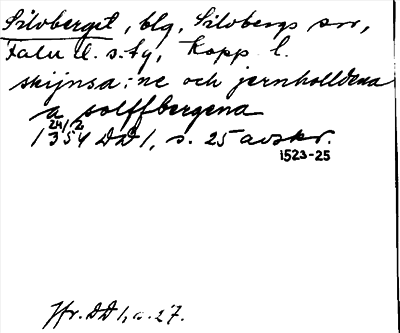 Silvberget, blg, Silvbergs sn,
Falu d. s. tg, Kopp. l.
skijnsa: ne och jernholldena
a solffbergena
24/2 1354 DD 1, s. 25 avskr.
1523-25
Jfr. DD 1, s. 27.